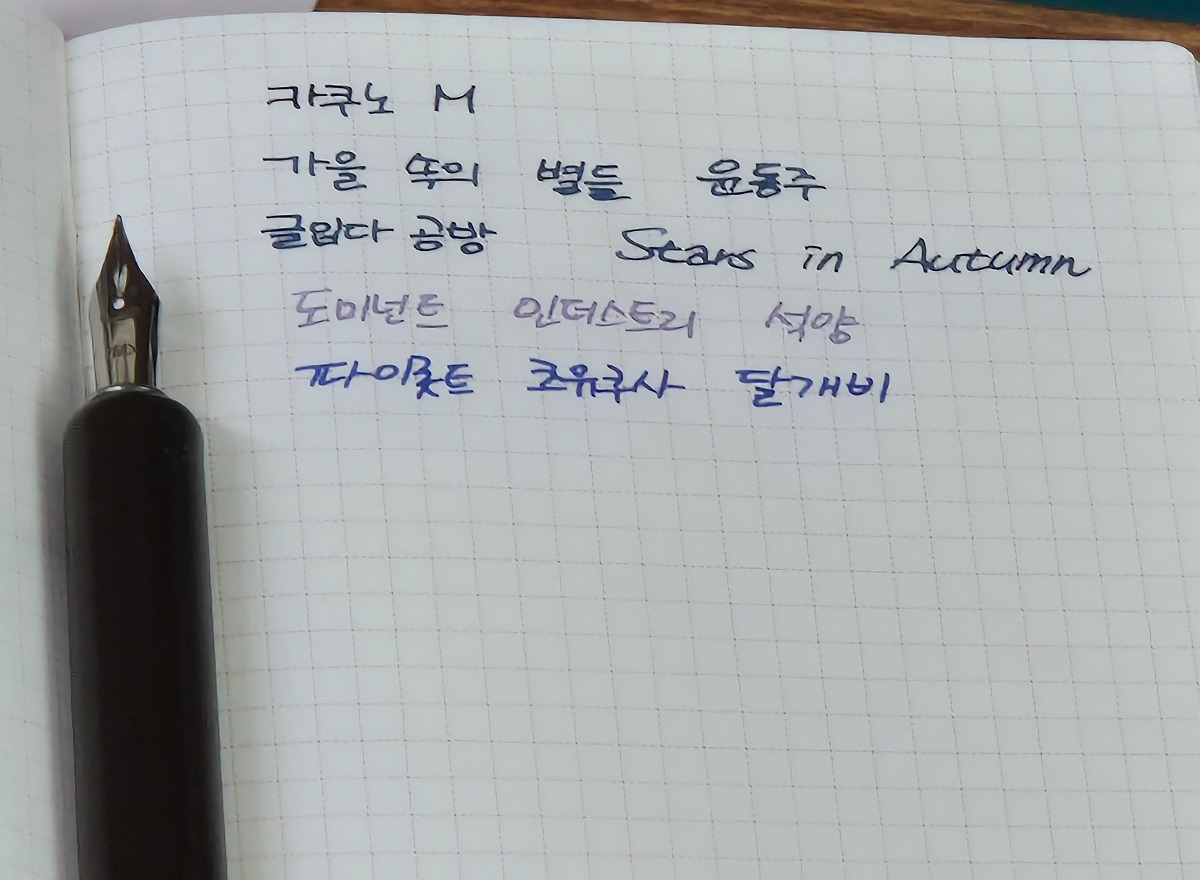 카쿠노 M
가을 쏙의 별들 윤동주
글입다 공방 Stars in Autumn
도미넌트 인더스트리 석양
파이롯트 코유쿠사 달개비